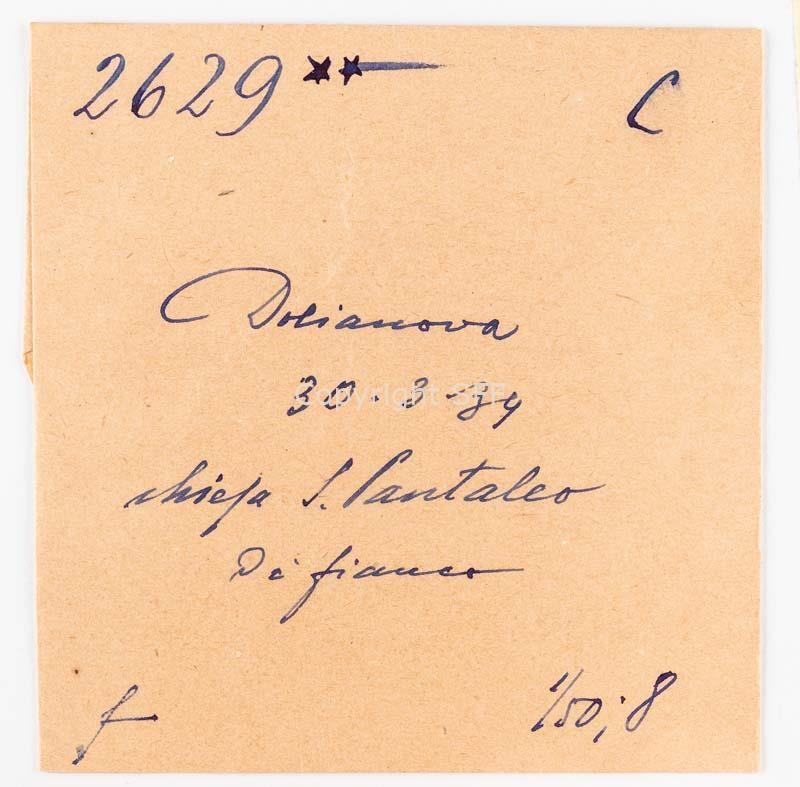 2629 ★★ C
Dolianova
30-3-34
chiesa S. Pantaleo
Di fianco
f 1/50; 8
Copyright SFF